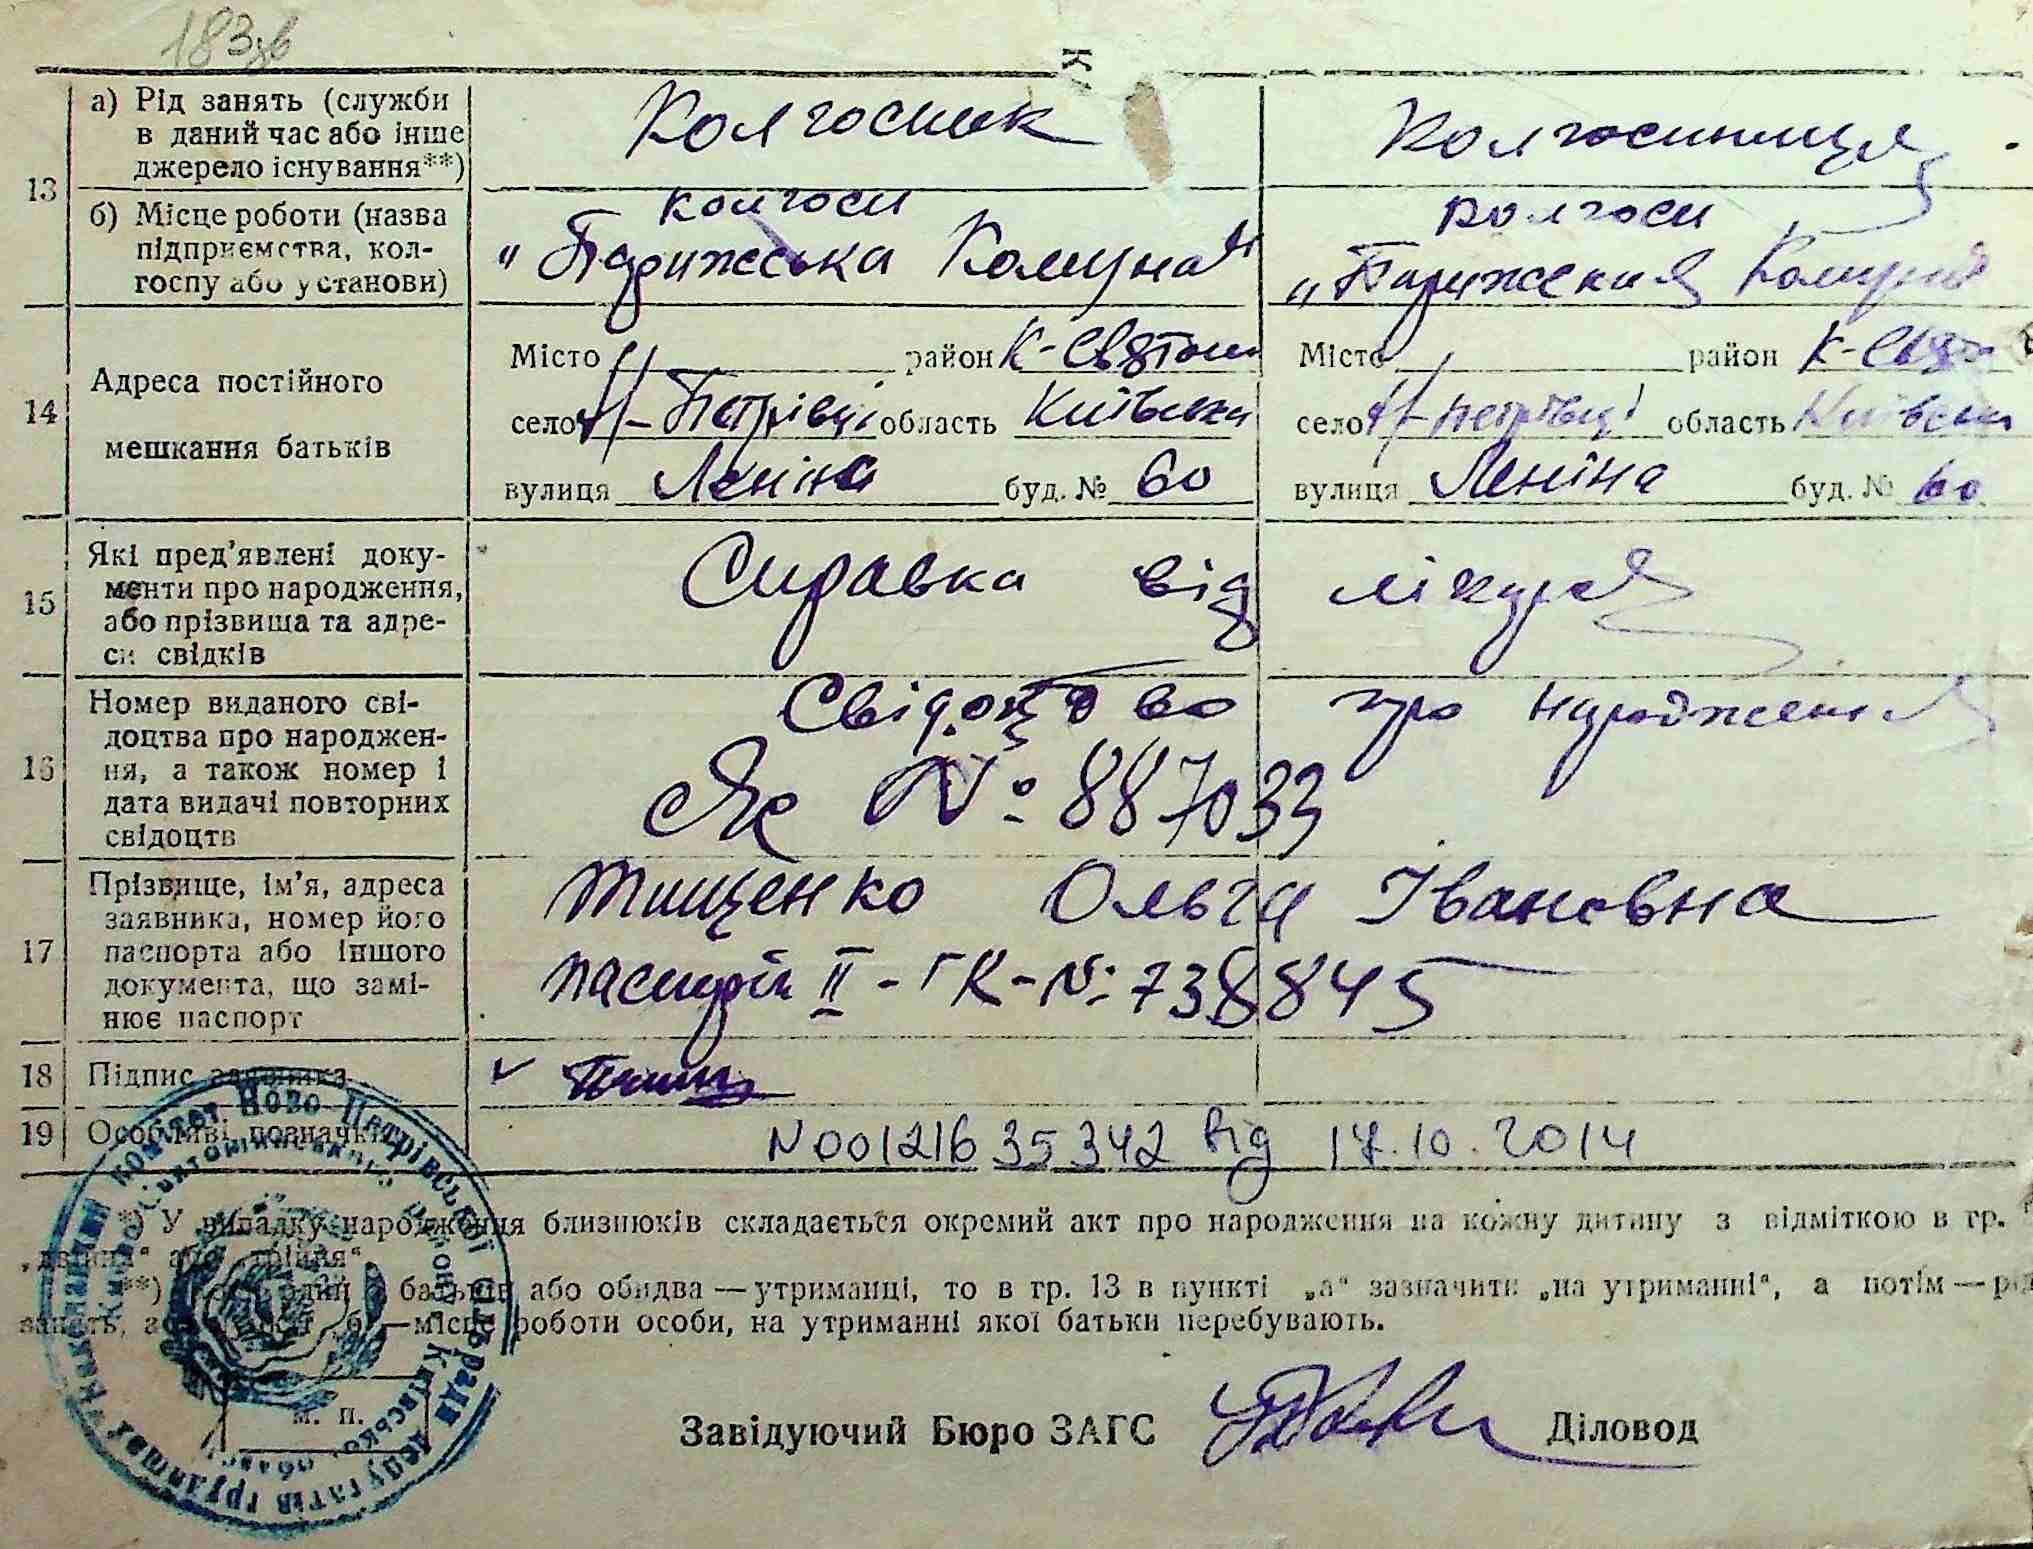 183зв
13 а) Рід занять (служби в даний час або інше джерело існування**) Колгоспник Колгоспниця
б) Місце роботи (назва підприємства, колгоспу або установи) колгосп „Парижська Комуна" колгосп „Парижская Комуна"
14 Адреса постійного мешкання батьків
Місто район К-Святош Місто район К-Свято
село Н-Петрівці область Київська село Н-Петрівці область Київська
вулиця Леніна буд. № 60 вулиця Леніна буд. № 60
15 Які пред’явлені документи про народження, або прізвища та адреси свідків Справка від лікаря
16 Номер виданого свідоцтва про народження, а також номер і дата видачі повторних свідоцтв Свідоцтво про народження
ЯЄ № 887033
17 Прізвище, ім’я, адреса заявника, номер його паспорта або іншого документа, що замінює паспорт Тищенко Ольга Івановна
паспорт II-ГК-№ 738845
18 Підпис заявника Тищ
19 Особливі позначки N00121635342 від 17.10.2014
*) У випадку народження близнюків складається окремий акт про народження на кожну дитину з відміткою в гр.
„двійня“ або „трійня“
**) один з батьків або обидва — утриманці, то в гр. 13 в пункті „а“ зазначити „на утриманні“, а потім — рід
занять, а „б“ — місце роботи особи, на утриманні якої батьки перебувають.
М. П.
Завідуючий Бюро ЗАГС Діловод
Виконавчий комітет Ново-Петрівської сільради депутатів трудящих
Києво-Святошинського району Київської област